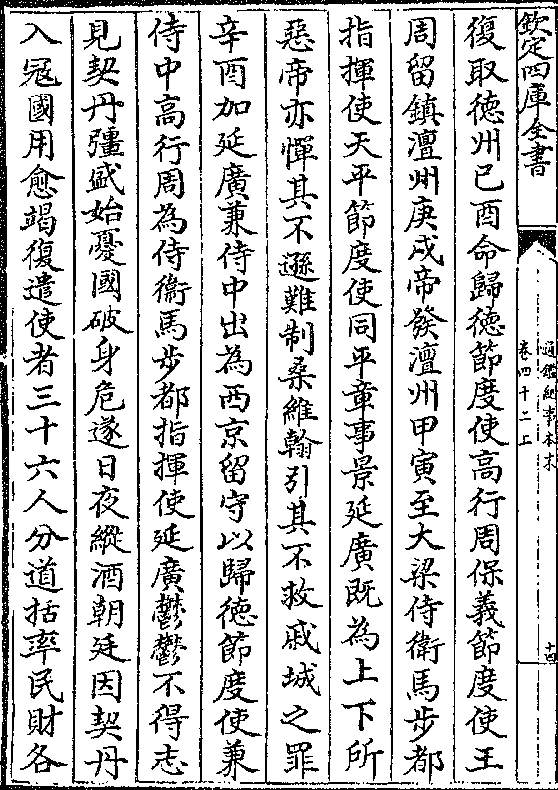 欽定四庫全書
通鑑紀事本末
卷四十二上
十四
復取德州己酉命歸德節度使高行周保義節度使王
周留鎮澶州庚戌帝發澶州甲寅至大梁侍衛馬步都
指揮使天平節度使同平章事景延廣既為上下所
惡帝亦憚其不遜難制桑維翰引其不救戚城之罪
辛酉加延廣兼侍中出為西京留守以歸德節度使兼
侍中高行周為侍衛馬步都指揮使延廣鬱鬱不得志
見契丹彊盛始憂國破身危遂日夜縱酒朝廷因契丹
入寇國用愈竭復遣使者三十六人分道括率民財各